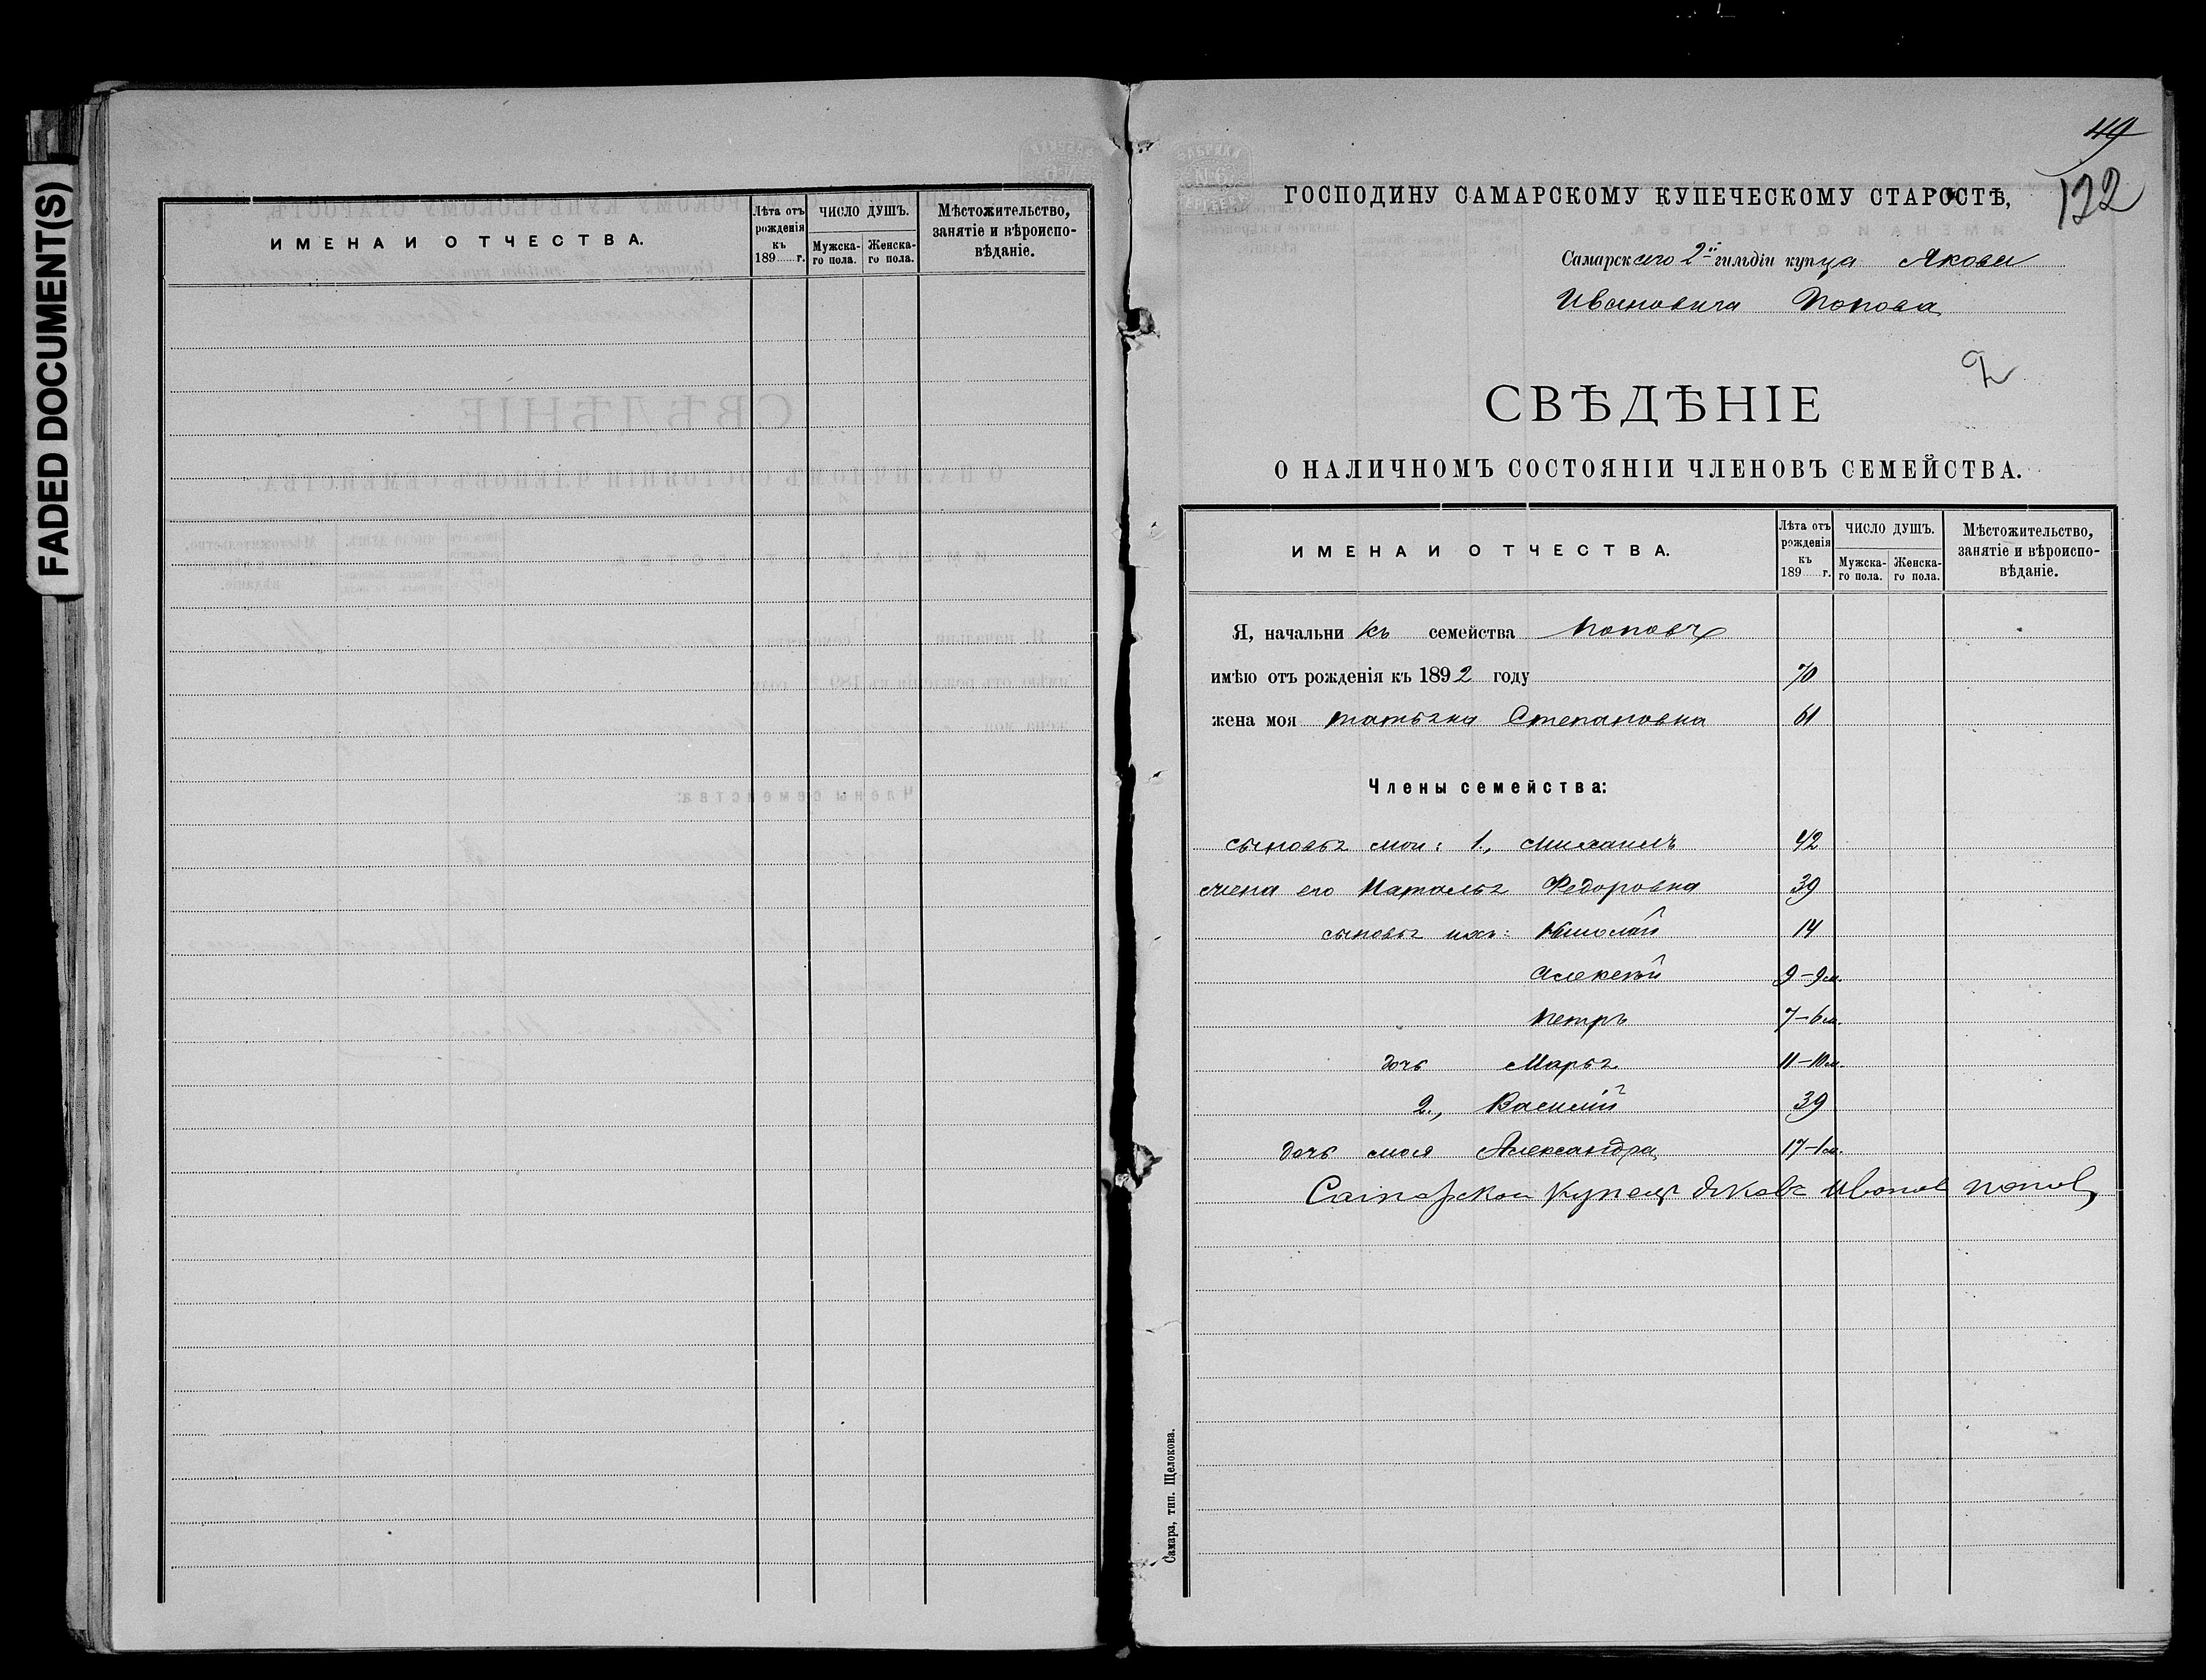 FADED DOCUMENT(S)
ИМЕНА И ОТЧЕСТВА.
Лѣта отъ рожденія къ 189 г.
ЧИСЛО ДУШЪ.
Мужска-го пола.
Женска-го пола.
Мѣстожительство, занятіе и вѣроиспо-вѣданіе.
49
122
ГОСПОДИНУ САМАРСКОМУ КУПЕЧЕСКОМУ СТАРОСТѢ,
Самарскаго 2й гильдіи купца Якова
Ивановича Попова
СВѢДѢНІЕ
О НАЛИЧНОМЪ СОСТОЯНІИ ЧЛЕНОВЪ СЕМЕЙСТВА.
ИМЕНА И ОТЧЕСТВА.
Лѣта отъ рожденія къ 189 г.
ЧИСЛО ДУШЪ.
Мужска-го пола.
Женска-го пола.
Мѣстожительство, занятіе и вѣроиспо-вѣданіе.
Я, начальникъ семейства Поповъ
имѣю отъ рожденія къ 1892 году 70
жена моя Татьяна Степановна 61
Члены семейства:
сыновья мои: 1., Михаилъ 42
жена его Наталья Федоровна 39
сыновья ихъ: Николай 14
Алексѣй 9-9м.
Петръ 7-6м.
дочь Марья 11-10м.
2., Василій 39
дочь моя Александра 17-1м.
Самарской Купецъ Яковъ Ивановъ Поповъ
Самара, тип. Щелокова.